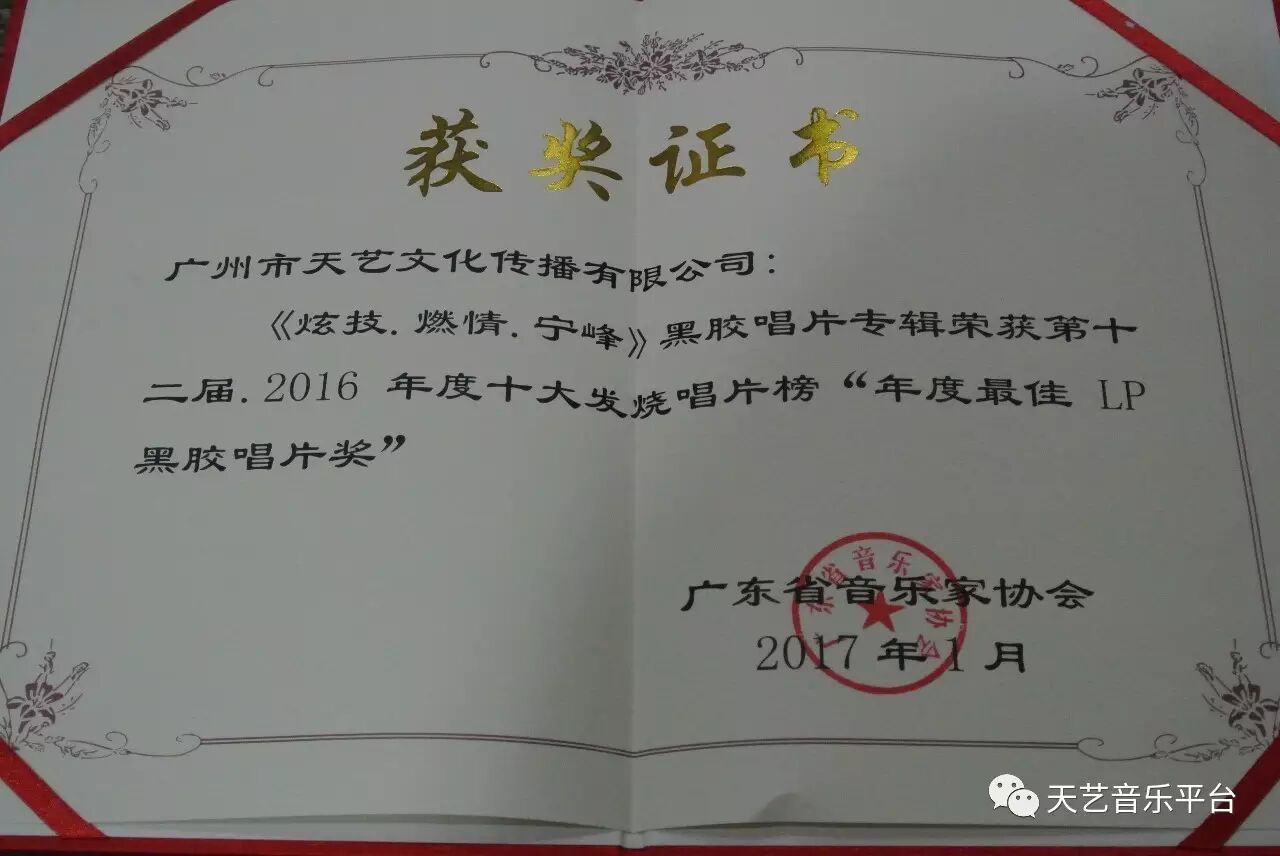 获奖证书
广州市天艺文化传播有限公司：
《炫技.燃情.宁峰》黑胶唱片专辑荣获第十
二届.2016 年度十大发烧唱片榜“年度最佳 LP
黑胶唱片奖”
广东省音乐家协会
2017 年 1 月
广东省音乐家协会
天艺音乐平台